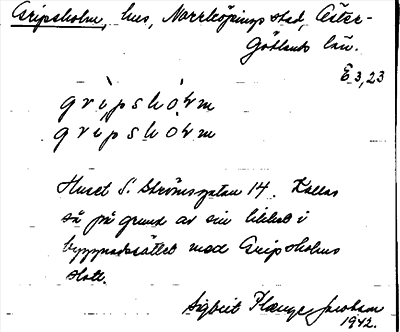 Gripsholm, hus, Norrköpings stad, Öster-
Götlands län.
E 3, 23
grìpshówm
grìpshówm
Huset S:t Strömsgatan 14. Kallas
så på grund av sin likhet i
byggnadssättet med Gripsholms
slott.
Sigbrit Plange Jacobson
1942.